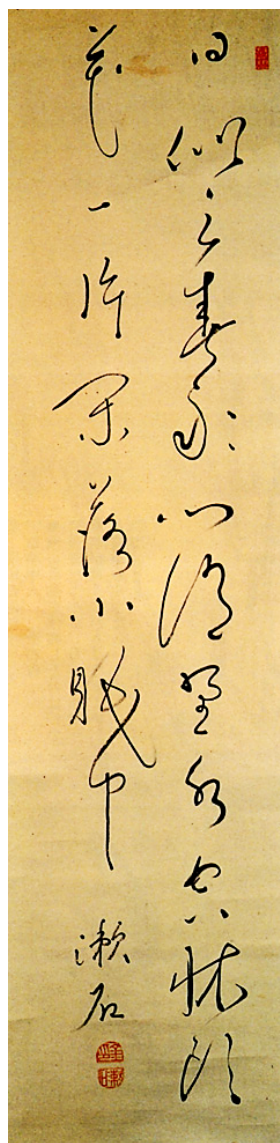 日似三春永心随野水空牀頭
花一片閑落小眠中 漱石